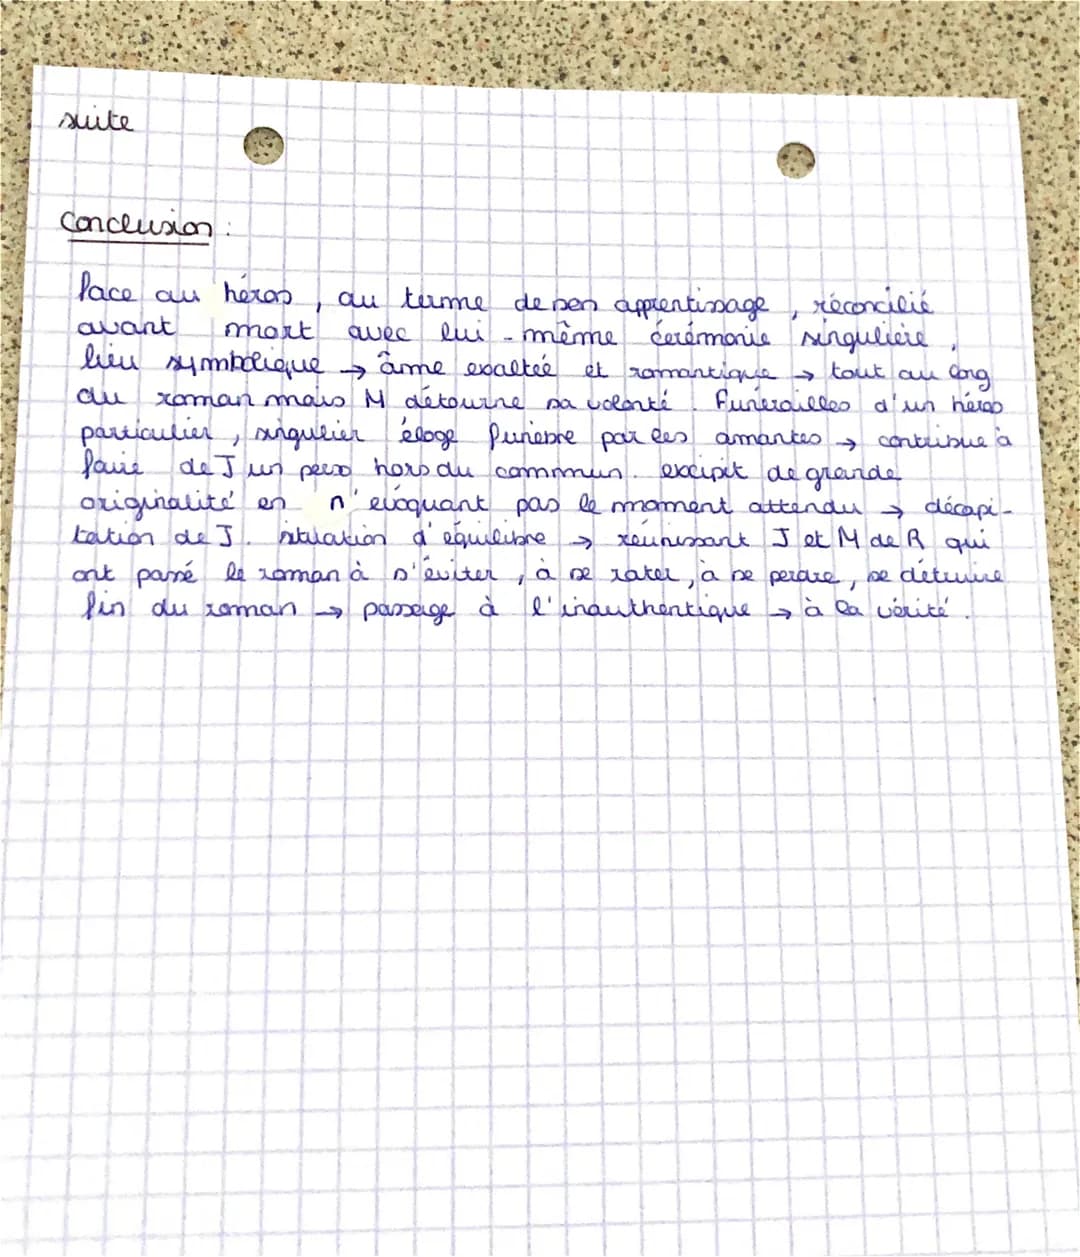 suite
Conclusion :
face au héros, au terme de son apprentissage, réconcilié
avant mort avec lui-même cérémonie singulière,
lieu symbolique → âme exaltée et romantique → tout au long
du roman mais M détourne sa volonté. Funérailles d'un héros
particulier, singulier éloge funèbre par les amantes → contribue à
faire de J un perso hors du commun. excipit de grande
originalité en n'évoquant pas le moment attendu → décapi-
tation de J. situation d'équilibre → réunissant J et M de R qui
ont passé le roman à s'éviter, à se rater, à se perdre, se détruire
fin du roman → passage à l'inauthentique → à la vérité.